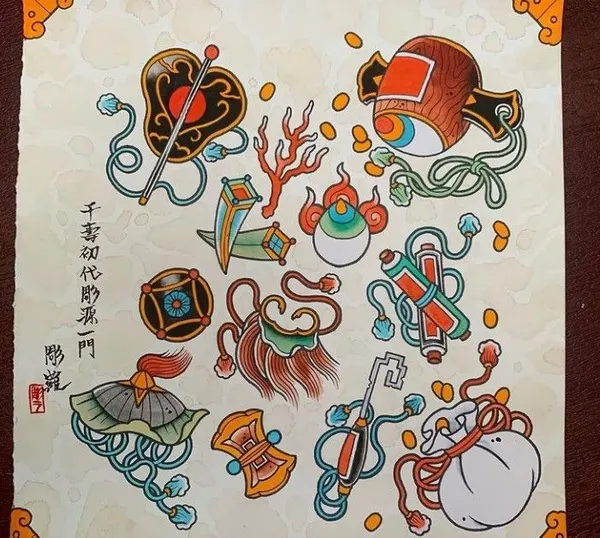 千壽初代彫源一門
彫羅